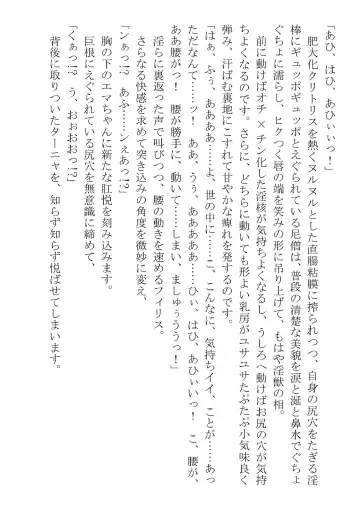 「あひ、はひ、あひぃぃっ！」
　肥大化クリトリスを熱くヌルヌルとした直腸粘膜に搾られつつ、自身の尻穴をたぎる淫
棒にギュッポギュッポとえぐられている尼僧は、普段の清楚な美貌を涙と涎と鼻水でぐちょ
ぐちょに濡らし、ヒクつく唇の端を笑みの形に吊り上げて、もはや淫獣の相。
　前に動けばオチ×チン化した淫核が気持ちよくなるし、うしろへ動けばお尻の穴が気持
ちよくなるのです。さらに、どちらに動いても形よい乳房がユサユサたぷたぷ小気味良く
弾み、汗ばむ裏地にこすれて甘やかな痺れを発するのです。
「はぁ、ふぅ、ああああ……よ、世の中に……こ、こんなに、気持ちイイ、ことが……あっ
ただなんて……ッ！　ああ、うぅ、あああああ……ひぃ、はひ、あひぃぃっ！　こ、腰が、
ああ腰がっ！　腰が勝手に、動いて……しまい、ましゅぅううっ！」
　淫らに裏返った声で叫びつつ、腰の動きを速めるフィリス。
　さらなる快感を求めて突き込みの角度を微妙に変え、
「ンぁっ!?　あふ……んぇあっ!?」
　胸の下のエマちゃんに新たな肛悦を刻み込みます。
　巨根にえぐられている尻穴を無意識に締めて、
「くぁっ!?　う、おぉおおっ!?」
　背後に取りついたターニャを、知らず知らず悦ばせてしまいます。